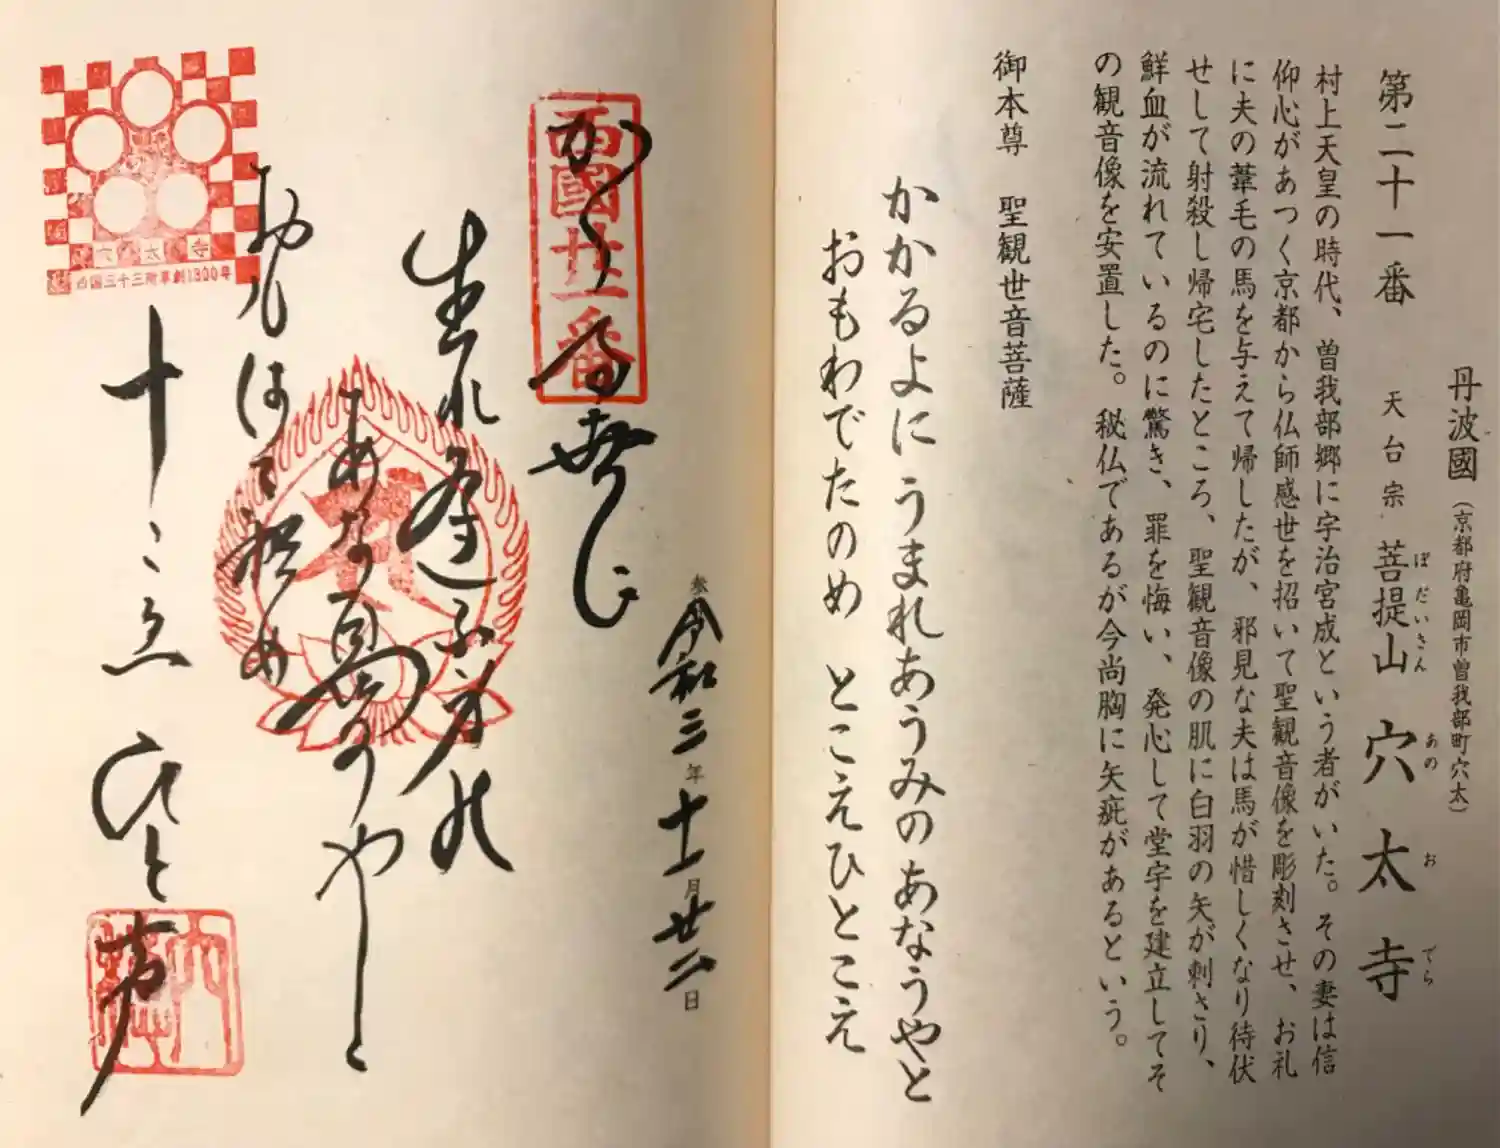 丹波國(京都府亀岡市曽我部町穴太)
第二十一番 天台宗 菩提山 穴太寺
ぼだいさん あのおでら
村上天皇の時代、曽我部郷に宇治宮成という者がいた。その妻は信
仰心があつく京都から仏師感世を招いて聖観音像を彫刻させ、お礼
に夫の葦毛の馬を与えて帰したが、邪見な夫は馬が惜しくなり待伏
せして射殺し帰宅したところ、聖観音像の肌に白羽の矢が刺さり、
鮮血が流れているのに驚き、罪を悔い、発心して堂宇を建立してそ
の観音像を安置した。秘仏であるが今尚胸に矢疵があるという。
御本尊 聖観世音菩薩
かかるよに うまれあうみの あなうやと
おもわでたのめ とこえひとこえ
令和三年十一月廿二日
西國廿一番
かゝる世に
生れ逢ふ身の
あな
やと
おもはて
十こゑ ひと声
穴太寺
西国三十三所草創1300年